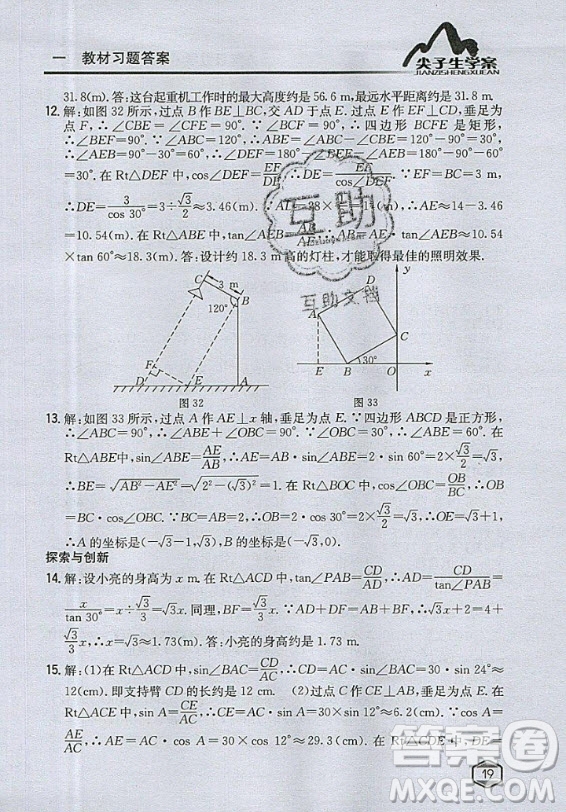 一 教材习题答案
尖子生学案
JIANZISHENGXUEAN
31.8(m). 答：这台起重机工作时的最大高度约是 56.6 m, 最远水平距离约是 31.8 m.
12. 解：如图 32 所示, 过点 B 作 BE⊥BC, 交 AD 于点 E. 过点 E 作 EF⊥CD, 垂足
为点 F, ∴∠CBE=∠CFE=90°. ∵∠C=90°, ∴四边形 FCBE 是矩形,
∴∠CEB=90°. ∵∠ABC=120°, ∴∠ABE=∠ABC-∠CBE=120°-90°=30°.
∴∠AEB=90°-30°=60°. ∴∠DEF=180°-∠BEF-∠AEB=180°-90°-60°
=30°. 在 Rt△DEF 中, cos∠DEF=EF/DE, ∠DEF=30°, EF=BC=3 m,
∴DE=3/cos 30°=3÷√3/2≈3.46(m). ∵AD=28×1/2=14(m), ∴AE≈14-3.46
=10.54(m). 在 Rt△ABE 中, tan∠AEB=AB/AE, ∴AB=AE·tan∠AEB≈10.54
×tan 60°≈18.3(m). 答：设计约 18.3 m 高的灯柱, 才能取得最佳的照明效果.
互助
互助文档
C 3 m
120° B
F
D E A
图 32
y
D
A
C
30°
E B O x
图 33
13. 解：如图 33 所示, 过点 A 作 AE⊥x 轴, 垂足为点 E. ∵四边形 ABCD 是正方形,
∴∠ABC=90°, ∴∠ABE+∠CBO=90°. ∵∠CBO=30°, ∴∠ABE=60°. 在
Rt△ABE 中, sin∠ABE=AE/AB, ∴AE=AB·sin∠ABE=2·sin 60°=2×√3/2=√3,
∴BE=√AB²-AE²=√2²-(√3)²=1. ∵在 Rt△BOC 中, cos∠CBO=OB/BC,
∴OB=BC·cos∠OBC. ∵∠CBO=30°, BC=2, ∴OB=2·cos 30°=2×√3/2=√3,
∴A 的坐标是(-√3-1,√3), B 的坐标是(-√3,0).
探索与创新
14. 解：设小亮的身高为 x m. 在 Rt△ACD 中, tan∠CAD=CD/AD, ∴AD=CD/tan∠CAD=
x/tan 30°=x/√3/3=√3x. 同理, BF=√3/3x. ∵AD+DF+BF=5, DF=1, ∴√3x+1+
√3/3x=5. ∴x≈1.73(m). 答：小亮的身高约是 1.73 m.
15. 解：(1)在 Rt△ACD 中, sin∠BAC=CD/AC, ∴CD=AC·sin∠BAC=30·sin 24°≈
12(cm). 即支持臂 CD 的长约是 12 cm. (2)过点 C 作 CE⊥AB, 垂足为点 E. 在
Rt△ACE 中, sin A=CE/AC, ∴CE=AC·sin A=30×sin 12°≈6.3(cm). ∵cos A=
AE/AC, ∴AE=AC·cos A=30×cos 12°≈29.3(cm). 在 Rt△CDE 中, DE=
19
答案圈
MXQE.COM